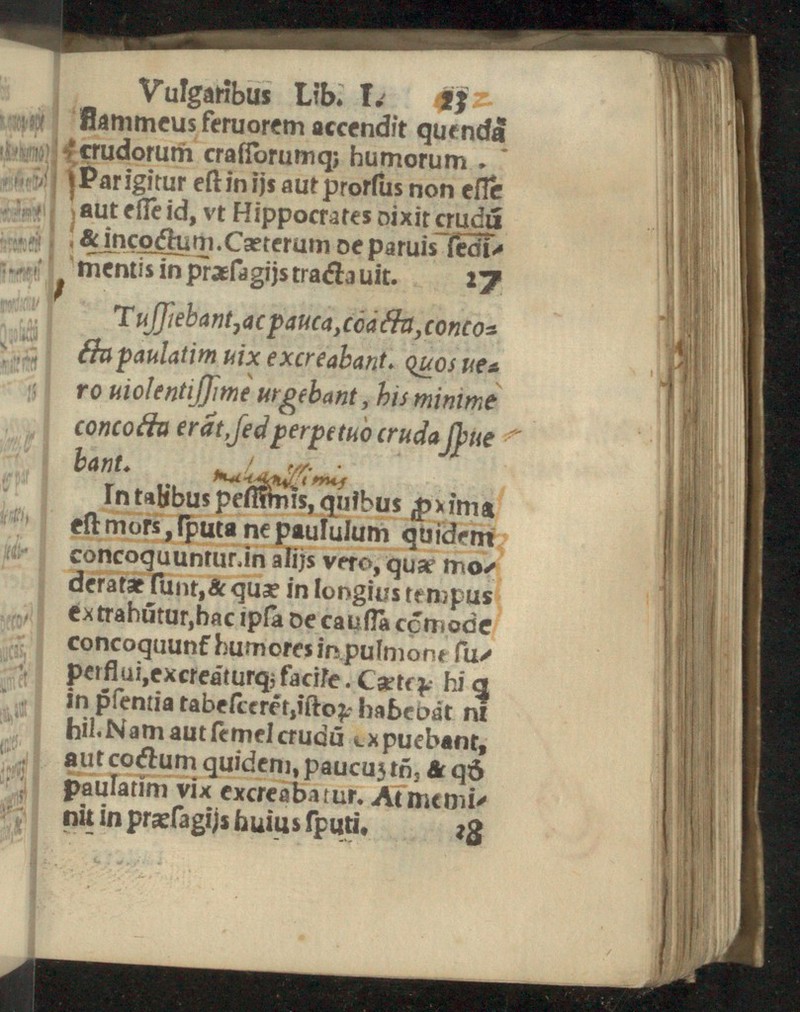 Vulgaribus Lib. I. 23
flammeus feruorem accendit quendã
crudorum crassorumq; humorum .
Par igitur est in ijs aut prorsus non esse
aut esse id, vt Hippocrates dixit crudũ
& incoctum. Cæterum de paruis sedi⸗
mentis in præsagijs tractauit. 27
Tussiebant, ac pauca, coácta, conco⸗
cta paulatim uix excreabant. quos ue⸗
ro uiolentissime urgebant, his minime
concocta erãt, sed perpetuo cruda spue
bant.
malignissimis
In talibus pessimis, quibus ꝓxima
est mors, sputa ne paululum quidem
concoquuntur. in alijs vero, quæ mo⸗
deratæ sunt, & quæ in longius tempus
extrahũtur, hac ipsa de caussa cõmode
concoquunt humores in pulmone su⸗
perflui, excreãturq; facile. Cæteꝝ hi q
in p̃sentia tabescerẽt, istoꝝ habebãt ni
hil. Nam aut semel crudũ expuebant,
aut coctum quidem, paucuȝ tñ, & qđ
paulatim vix excreabatur. At memi⸗
nit in præsagijs huius sputi. 28